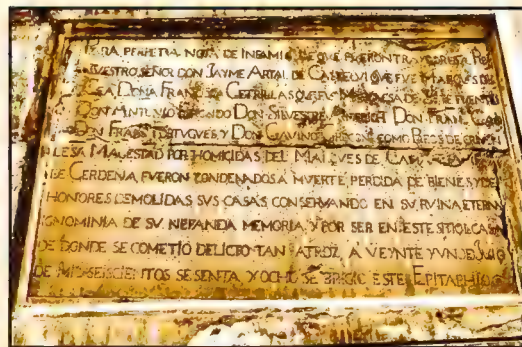 PERA PERPETVA NOTA DE INFAMIA DE QVE FVERON TRAYDORES A REY
NVESTRO SEÑOR DON JAYME ARTAL DE CASTELVI QVE FVE MARQVES DE
CEA DOÑA FRANCISCA CETRILLAS QVE FVE MARQVESA DE SIETE FVENTES
DON ANTONIO DON SILVESTRE AYMERICH DON FRANCISCO CAO
DON FRANCO PORTVGVES Y DON GAVINO COMO REOS DE CRIMEN
LESA MAGESTAD POR HOMICIDAS DEL MARQVES DE CAMARASA VIRREY
DE CERDEÑA FVERON CONDENADOS A MVERTE PERDIDA DE BIENES Y DE
HONORES DEMOLIDAS SVS CASAS CONSERVANDO EN SV RVINA ETERNA
IGNOMINIA DE SV NEFANDA MEMORIA Y POR SER EN ESTE SITIO LA CASA
DE DONDE SE COMETIO DELICTO TAN ATROZ A VEYNTE Y VNO DE JVLIO
DE MIL SEISCIENTOS SESENTA Y OCHO SE ERIGIO ESTE EPITAPHIO